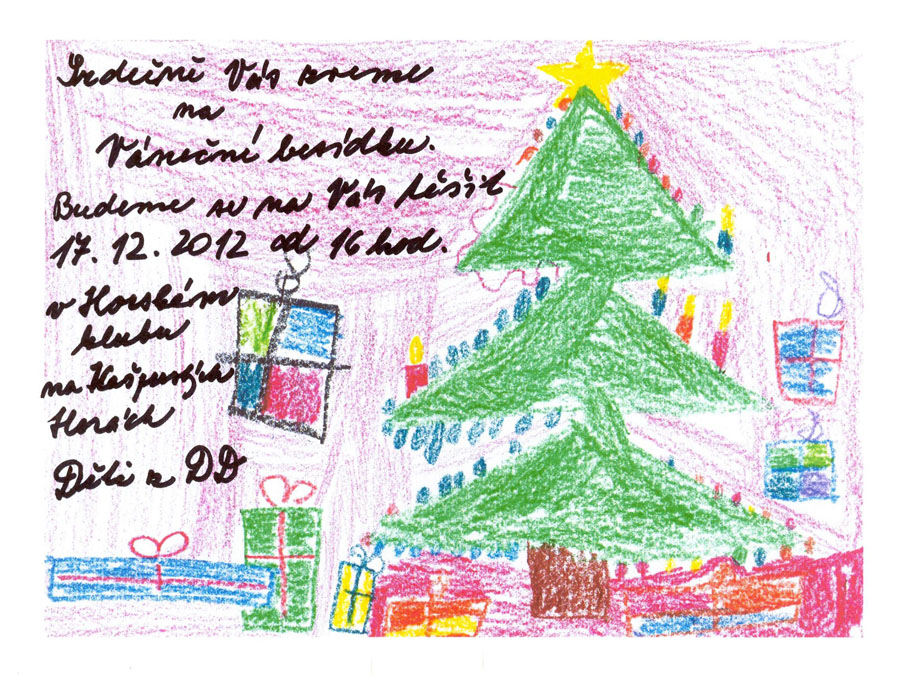 Srdečně Vás zveme
na
Vánoční besídku.
Budeme se na Vás těšit
17. 12. 2012 od 16 hod.
v Horském
klubu
na Kašperských
Horách
Děti z DD